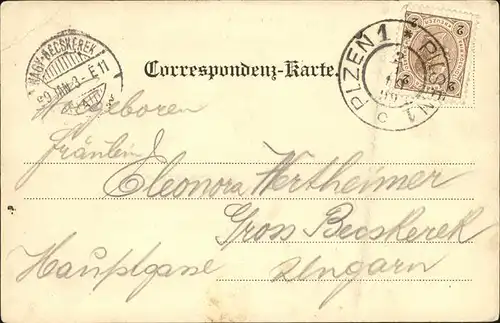 NAGY-BECSKEREK
Correspondenz-Karte.
PLZEN 1 PILSEN 1
2 2
2 2
Hochgeboren
Fräulein
Eleonora Wertheimer
Gross Becskerek
Hauptgasse Ungarn